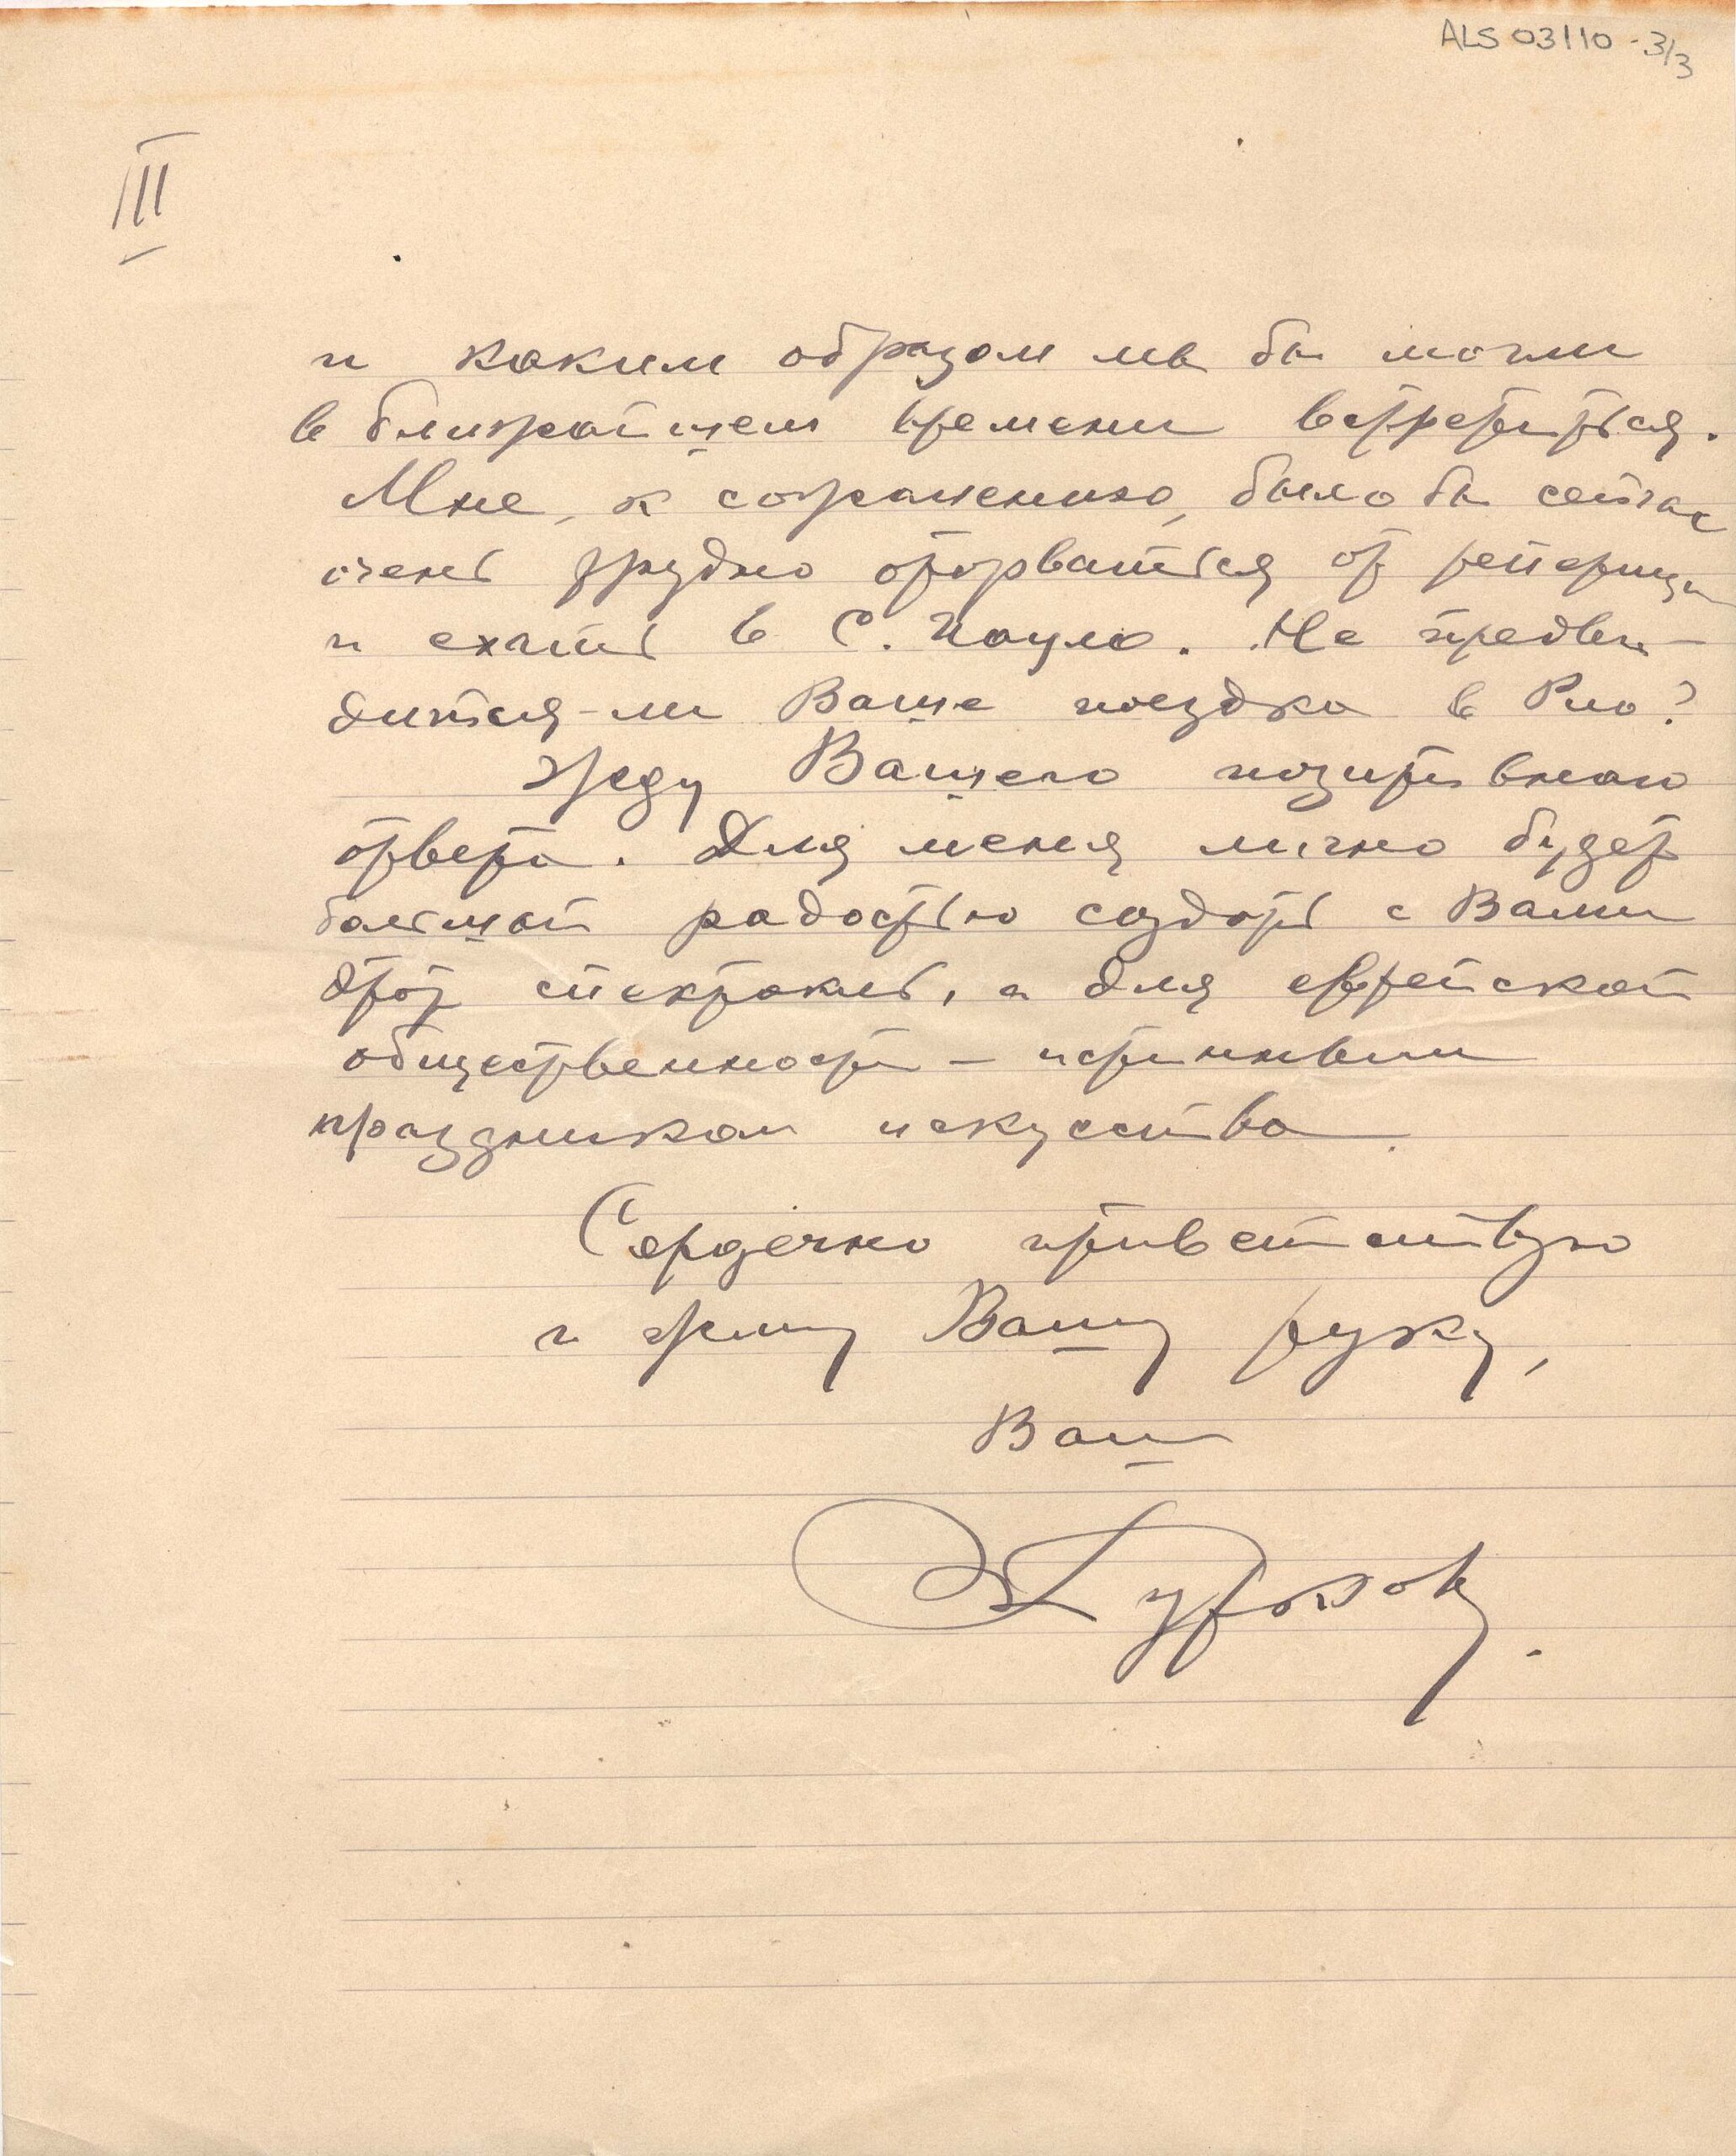 ALS 03110 - 3/3
III
и каким образом мы бы могли
в ближайшем времени встретиться.
Мне, к сожалению, было бы сейчас
очень трудно оторваться от репетиции
и ехать в С. Пауло. Не предви-
дится-ли Ваша поездка в Рио?
Жду Вашего позитивного
ответа. Для меня лично будет
большой радостью создать с Вами
этот спектакль, а для еврейской
общественности – истинным
праздником искусства.
Сердечно приветствую
и жму Вашу руку,
Ваш